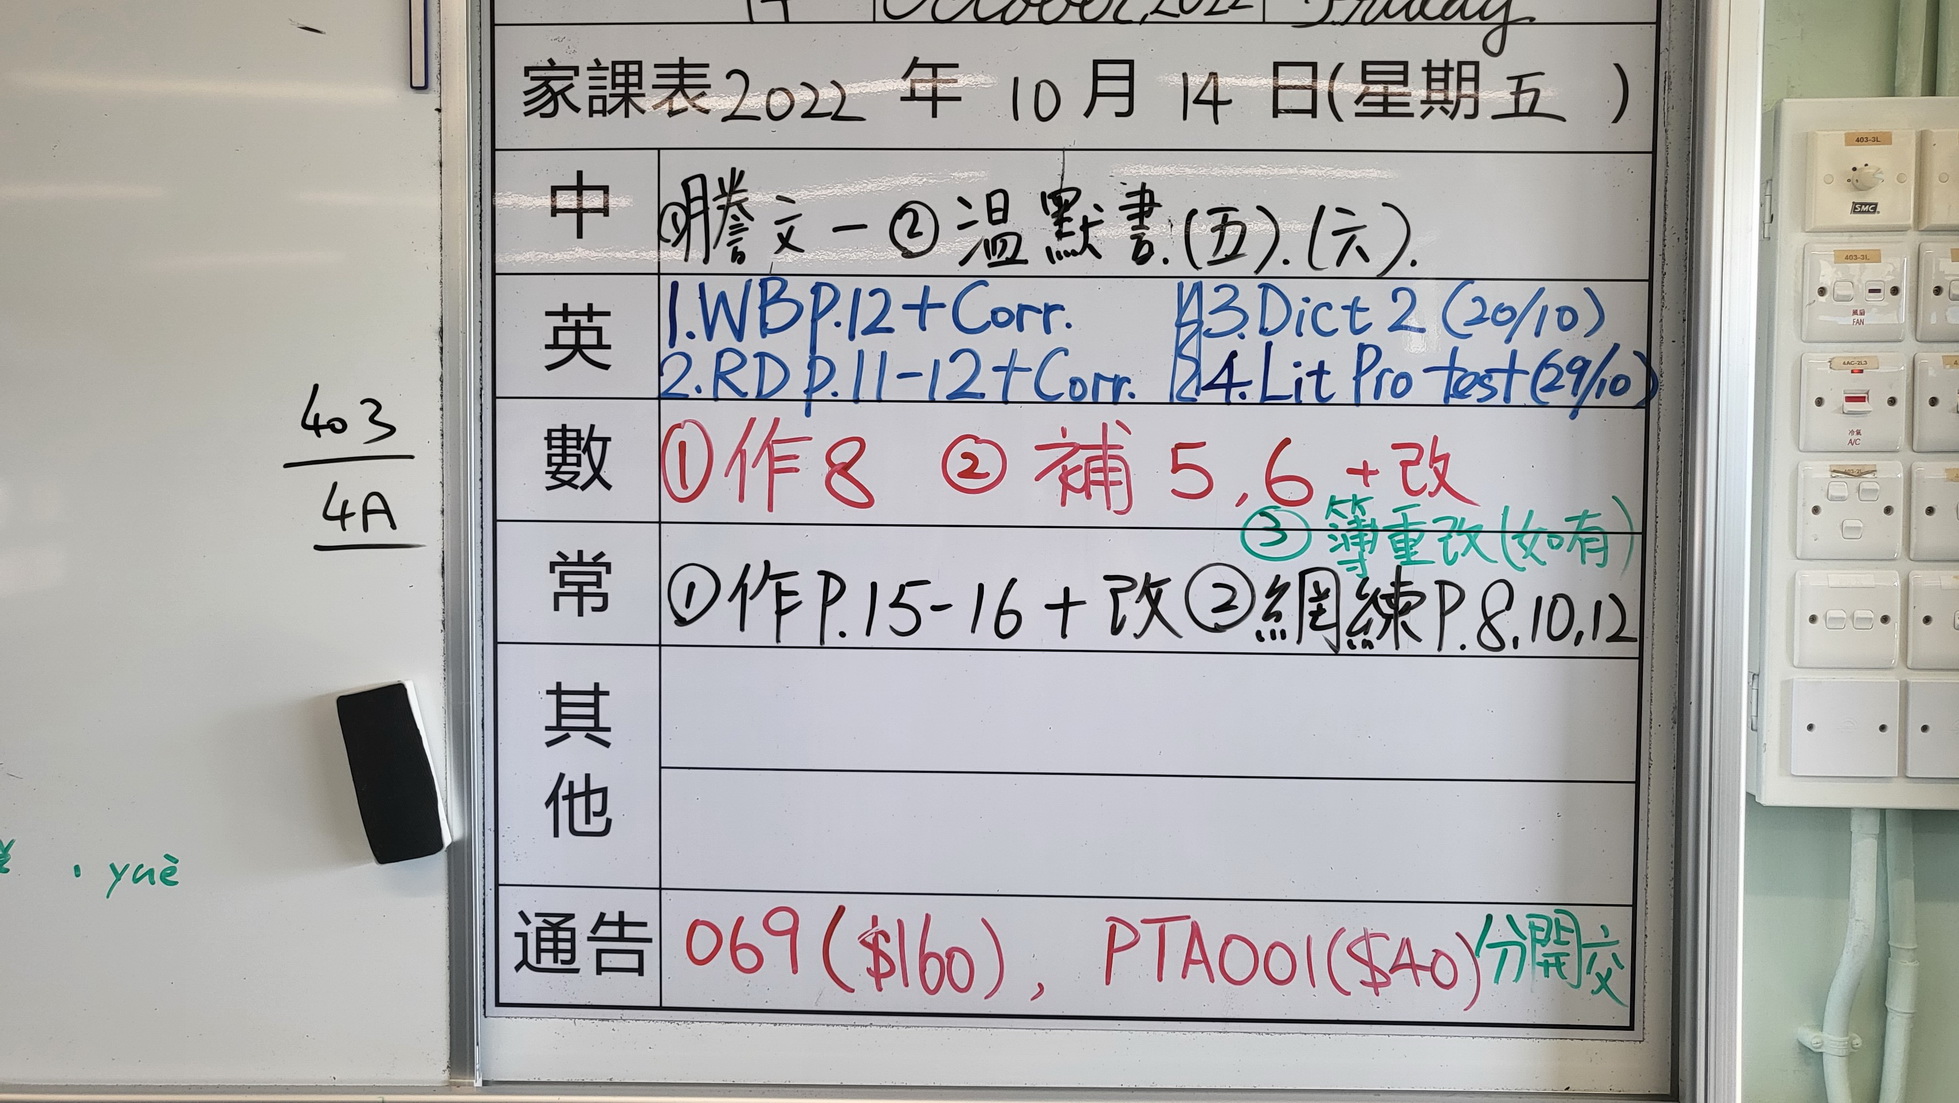 October, 2022 Friday
家課表 2022 年 10 月 14 日(星期五)
中 ①謄文一 ②溫默書.(五).(六).
英 1.WB P.12+Corr. 3.Dict 2 (20/10)
2.RD p.11-12+Corr. 4.Lit Pro test (29/10)
數 ①作8 ②補5,6+改
③簿重改(如有)
常 ①作P.15-16+改 ②網練P.8,10,12
其他
通告 069($160), PTA001($40)分開交
403
4A
yuè
403-3L
SMC
403-3L
風扇
FAN
冷氣
A/C